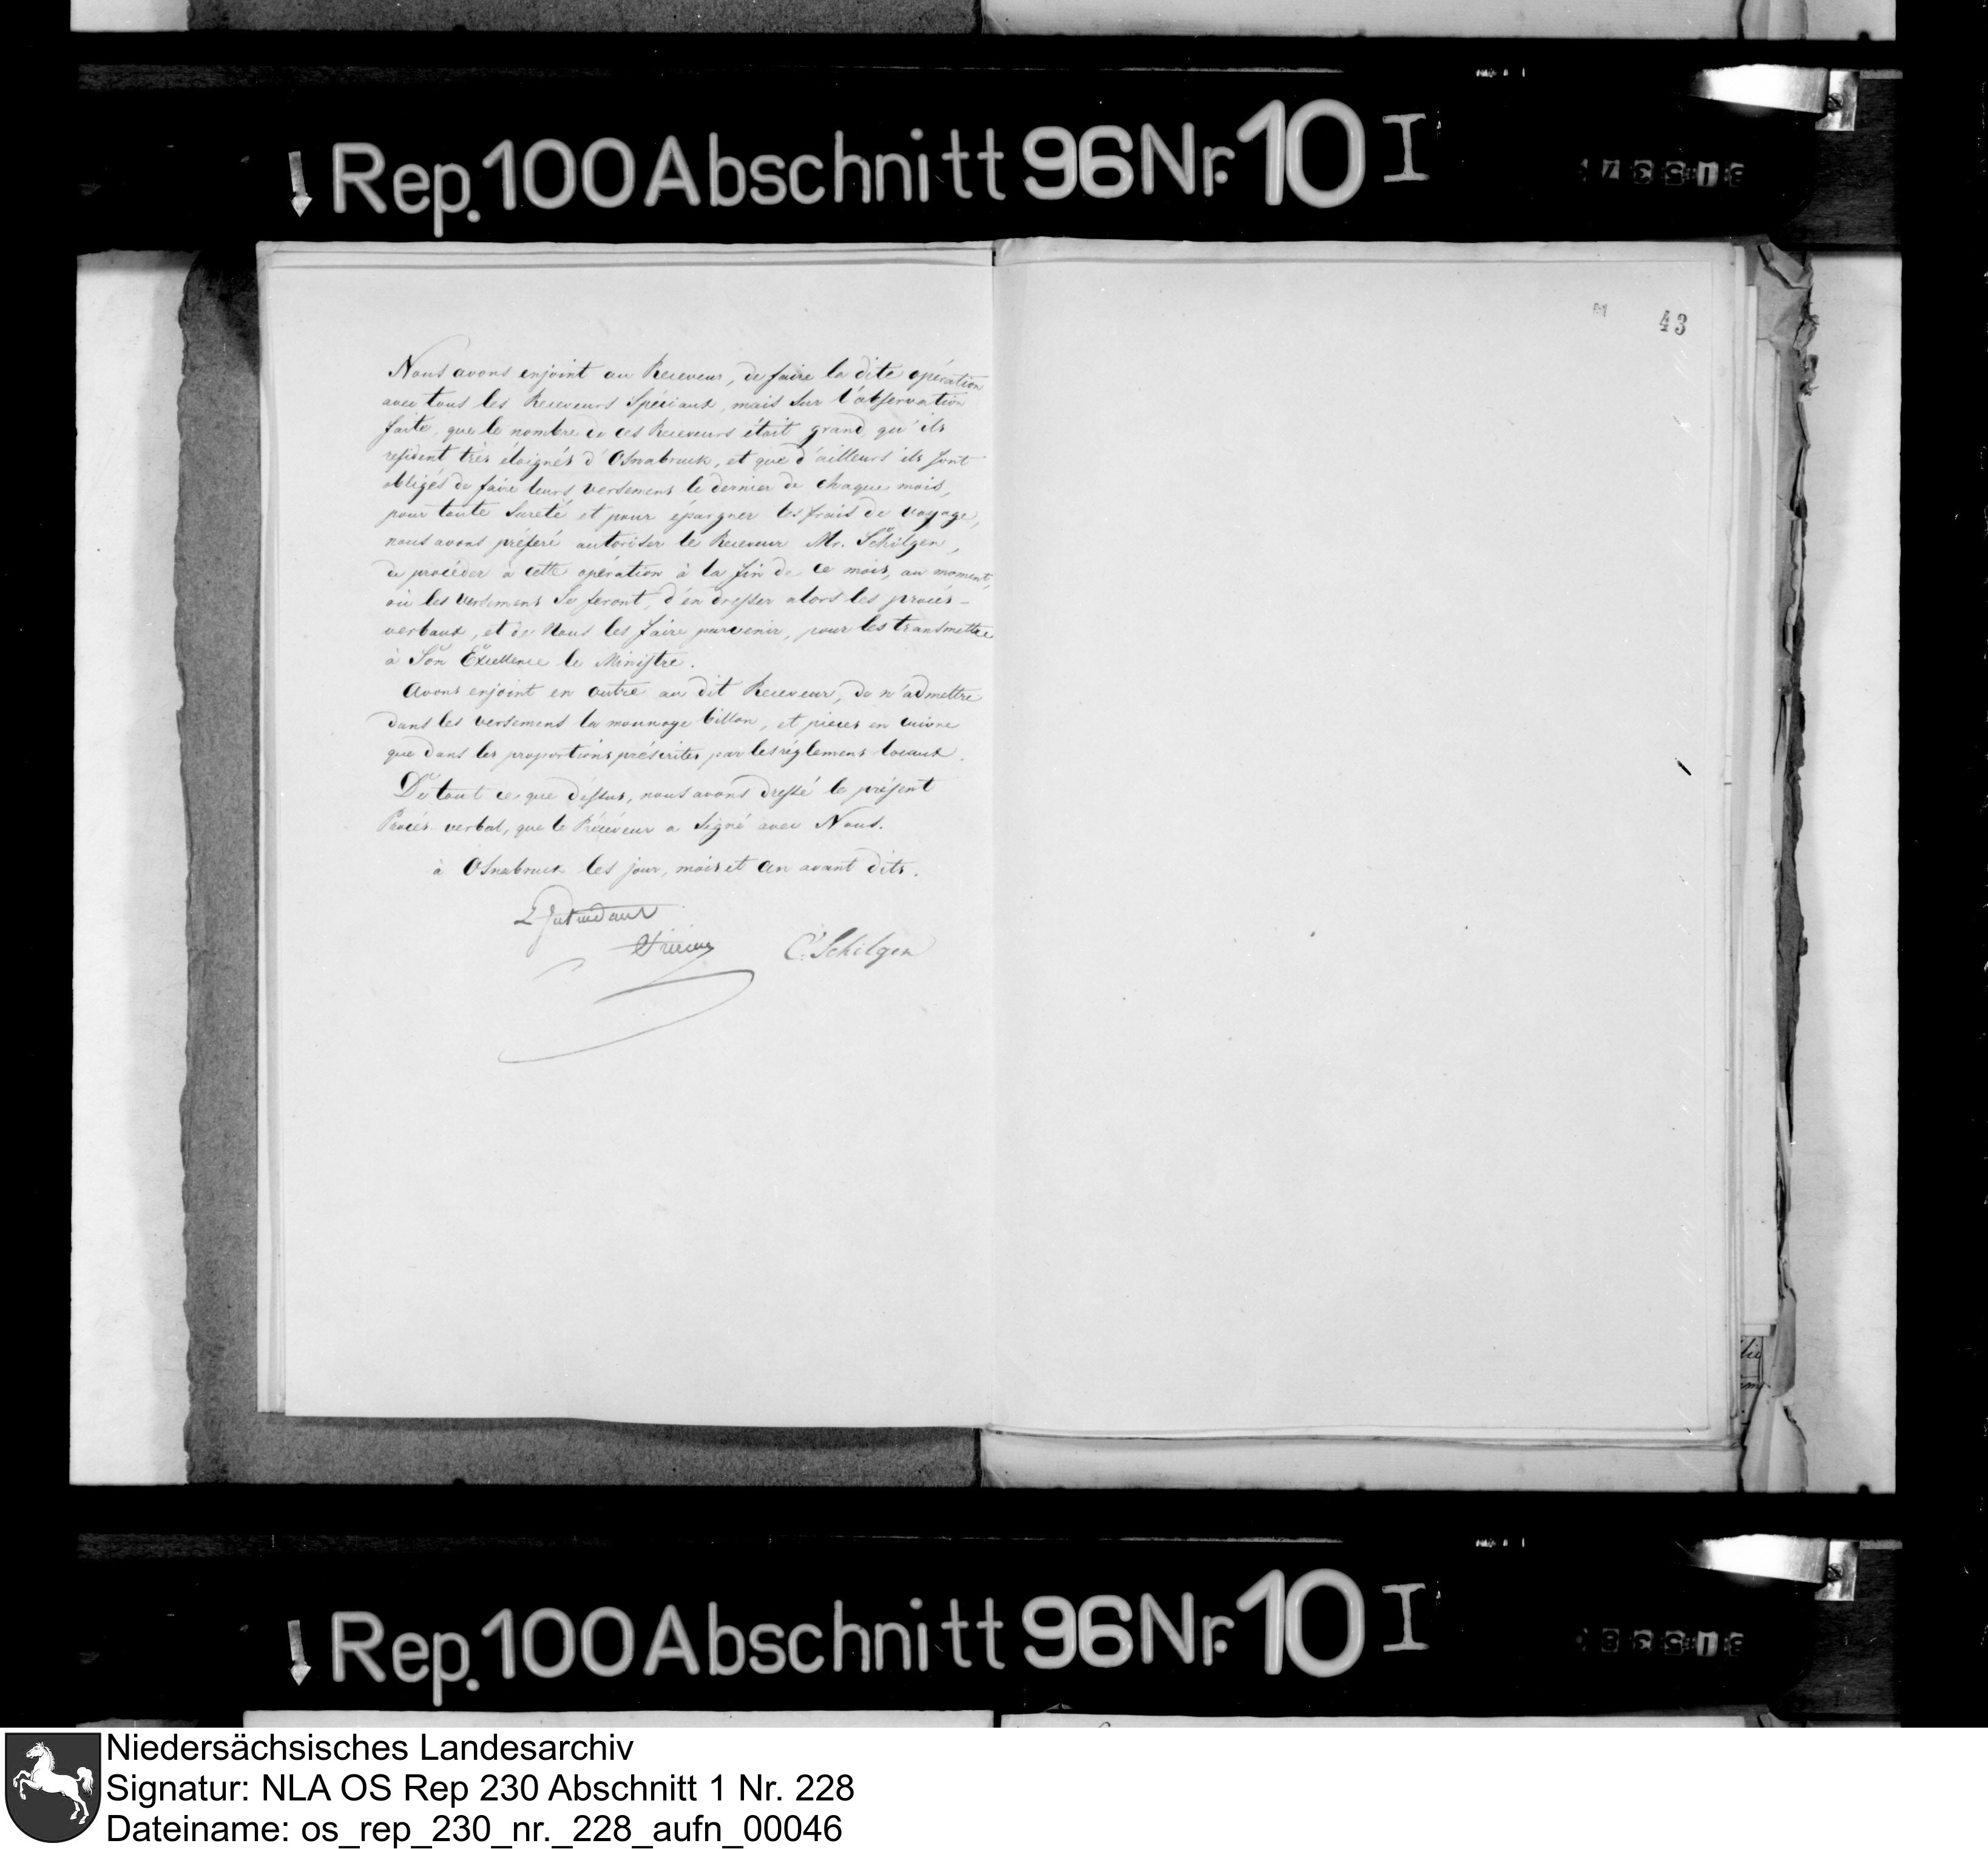 Rep. 100 Abschnitt 96 Nr. 10 I
43
Nous avons enjoint au Receveur, de faire la dite opération
avec tous les Receveurs Spéciaux, mais sur l'observation
faite, que le nombre de ces Receveurs étoit grand, qu'ils
resident très éloignés d'Osnabruck, et que d'ailleurs ils sont
obligés de faire leurs versemens le dernier de chaque mois,
pour toute sureté et pour épargner les frais de voyage,
nous avons préferé autoriser le Receveur Mr. Schilgen,
de procéder à cette opération à la fin de ce mois, au moment,
où les versemens se feront, d'en dresser alors les procés-
verbaux, et de Nous les faire parvenir, pour les transmettre
à Son Excellence le Ministre.
Avons enjoint en outre au dit Receveur, de n'admettre
dans les versemens la monnoye billon, et pieces en cuivre
que dans les proportions préscrites par les réglemens locaux.
De tout ce que dessus, nous avons dressé le présent
Procés-verbal, que le Récéveur a signé avec Nous.
à Osnabruck les jour, mois et an avant dits.
L'Intendant
C. Schilgen
Rep. 100 Abschnitt 96 Nr. 10 I
Niedersächsisches Landesarchiv
Signatur: NLA OS Rep 230 Abschnitt 1 Nr. 228
Dateiname: os_rep_230_nr._228_aufn_00046